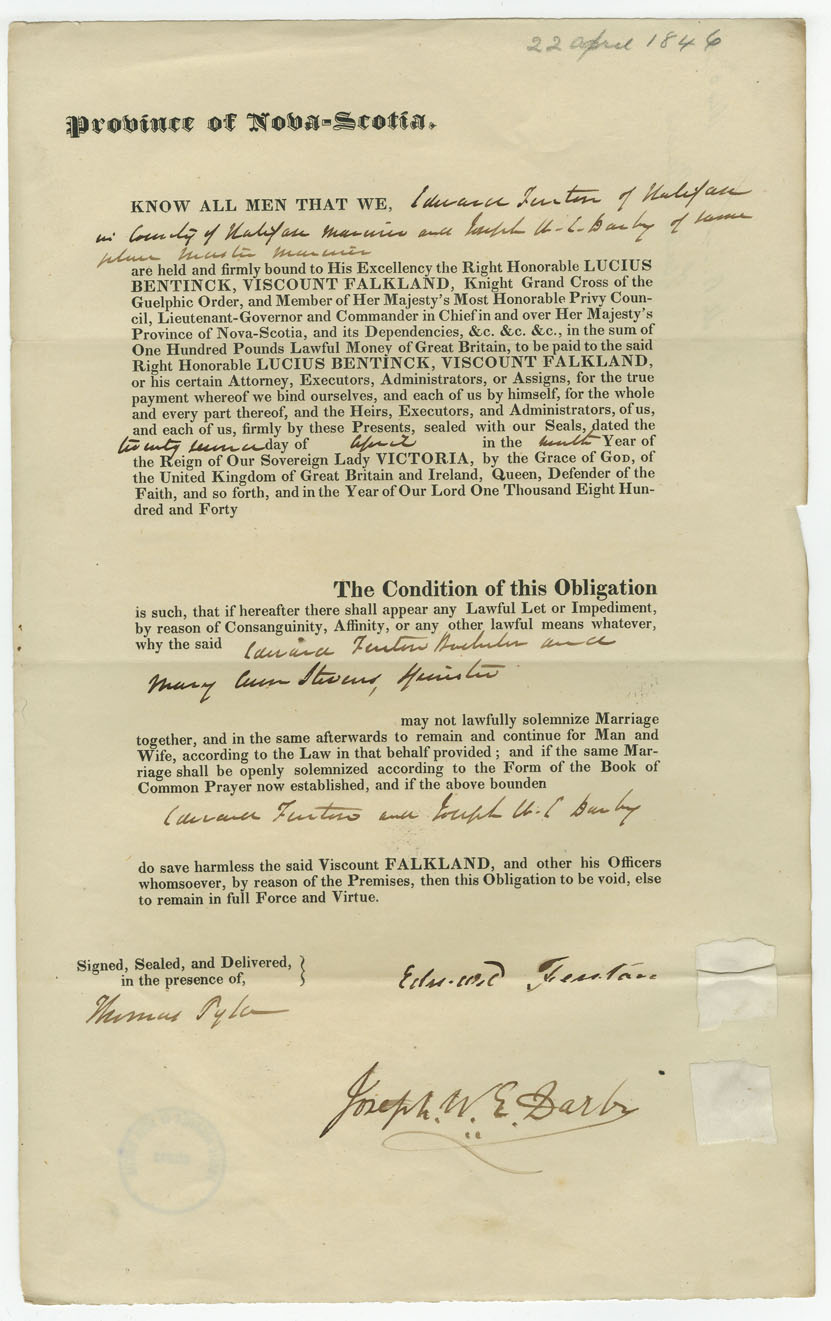 22 april 1846
Province of Nova-Scotia.
KNOW ALL MEN THAT WE, Edward Fenton of Halifax
in County of Halifax mariner and Joseph W. E. Darby of same
place Master Mariner
are held and firmly bound to His Excellency the Right Honorable LUCIUS
BENTINCK, VISCOUNT FALKLAND, Knight Grand Cross of the
Guelphic Order, and Member of Her Majesty's Most Honorable Privy Coun-
cil, Lieutenant-Governor and Commander in Chief in and over Her Majesty's
Province of Nova-Scotia, and its Dependencies, &c. &c. &c., in the sum of
One Hundred Pounds Lawful Money of Great Britain, to be paid to the said
Right Honorable LUCIUS BENTINCK, VISCOUNT FALKLAND,
or his certain Attorney, Executors, Administrators, or Assigns, for the true
payment whereof we bind ourselves, and each of us by himself, for the whole
and every part thereof, and the Heirs, Executors, and Administrators, of us,
and each of us, firmly by these Presents, sealed with our Seals, dated the
twenty second day of April in the ninth Year of
the Reign of Our Sovereign Lady VICTORIA, by the Grace of GOD, of
the United Kingdom of Great Britain and Ireland, Queen, Defender of the
Faith, and so forth, and in the Year of Our Lord One Thousand Eight Hun-
dred and Forty
The Condition of this Obligation
is such, that if hereafter there shall appear any Lawful Let or Impediment,
by reason of Consanguinity, Affinity, or any other lawful means whatever,
why the said Edward Fenton Bachelor and
Mary Ann Stevens, Spinster
may not lawfully solemnize Marriage
together, and in the same afterwards to remain and continue for Man and
Wife, according to the Law in that behalf provided ; and if the same Mar-
riage shall be openly solemnized according to the Form of the Book of
Common Prayer now established, and if the above bounden
Edward Fenton and Joseph W. E Darby
do save harmless the said Viscount FALKLAND, and other his Officers
whomsoever, by reason of the Premises, then this Obligation to be void, else
to remain in full Force and Virtue.
Signed, Sealed, and Delivered,
in the presence of,
Edward Fenton
Thomas Pyke
Joseph. W. E. Darby